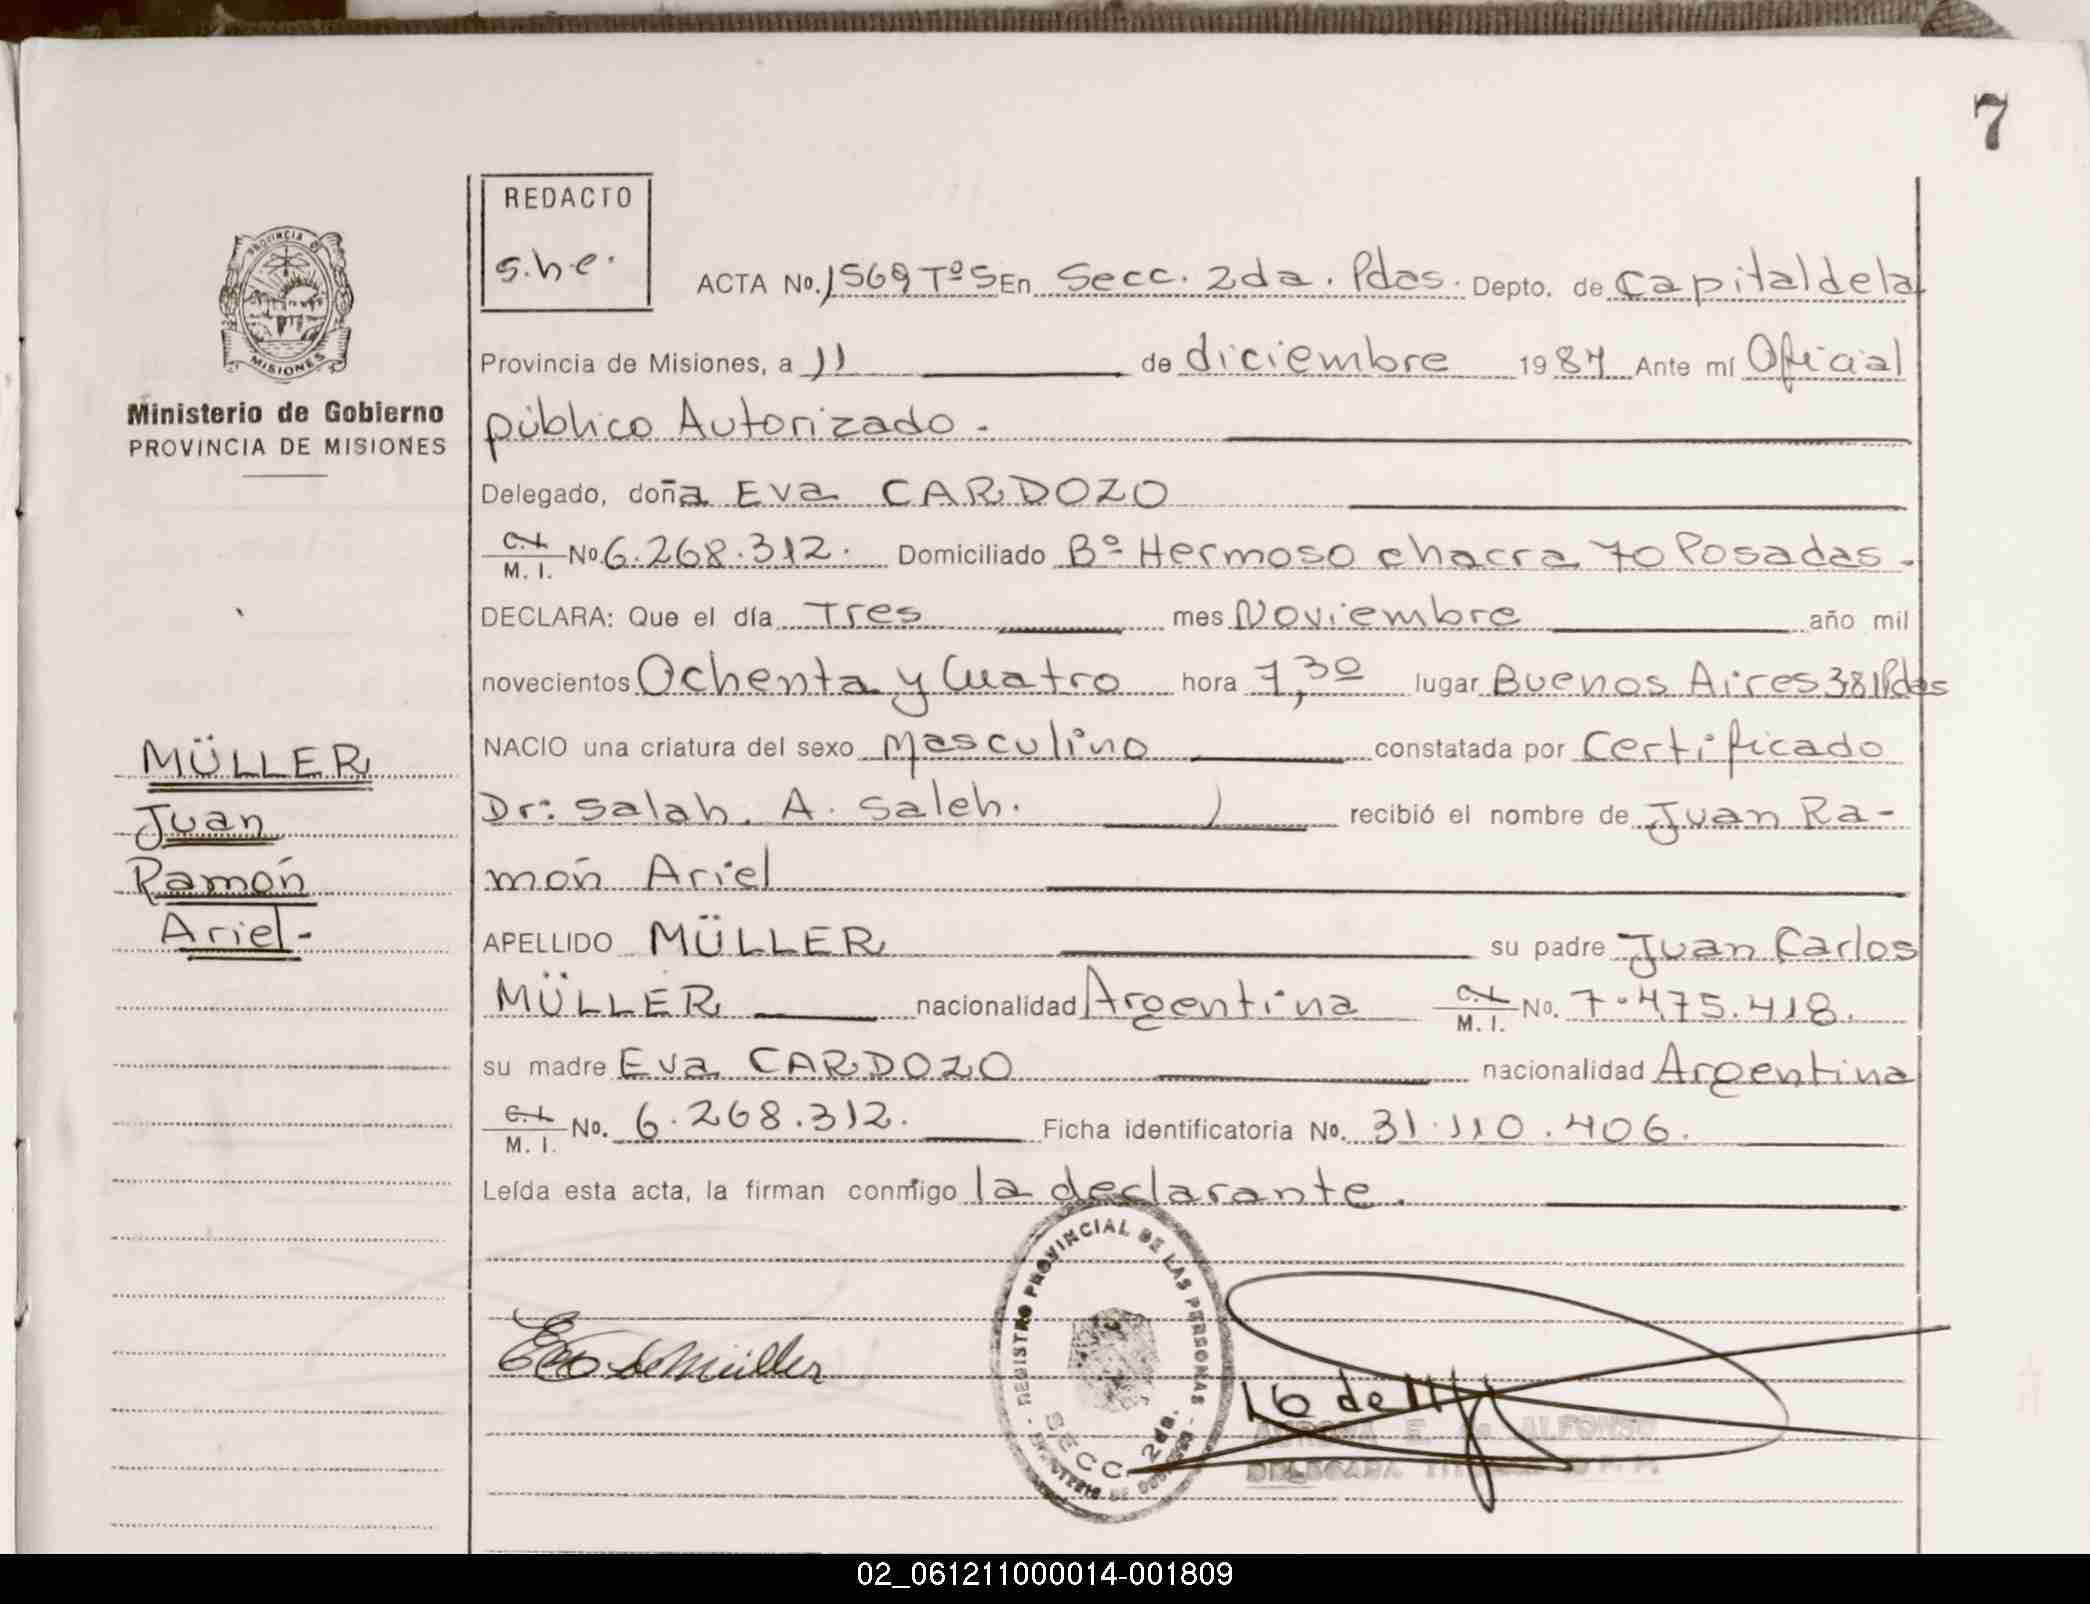 7
REDACTO
s.h.e.
ACTA No. 1569 Tº 5 En Secc. 2da. Pdas. Depto. de Capital de la
Provincia de Misiones, a 11 de diciembre 1984 Ante mí Oficial
público Autorizado.
Delegado, doña Eva CARDOZO
C.I. M. I. No. 6.268.312. Domiciliado Bº Hermoso chacra 70 Posadas.
DECLARA: Que el día Tres mes Noviembre año mil
novecientos Ochenta y Cuatro hora 7,30 lugar Buenos Aires 381 Pdas
NACIO una criatura del sexo Masculino constatada por Certificado
Dr: Salah. A. Saleh. recibió el nombre de Juan Ra-
món Ariel
APELLIDO MÜLLER su padre Juan Carlos
MÜLLER nacionalidad Argentina C.I. M. I. No. 7.475.418.
su madre Eva CARDOZO nacionalidad Argentina
C.I. M. I. No. 6.268.312. Ficha identificatoria No. 31.110.406.
Leída esta acta, la firman conmigo la declarante.
PROVINCIA DE
MISIONES
Ministerio de Gobierno
PROVINCIA DE MISIONES
MÜLLER
Juan
Ramón
Ariel-
Eva de Müller
REGISTRO PROVINCIAL DE LAS PERSONAS
SECC. 2da.
E. de ALFONSO
02_061211000014-001809